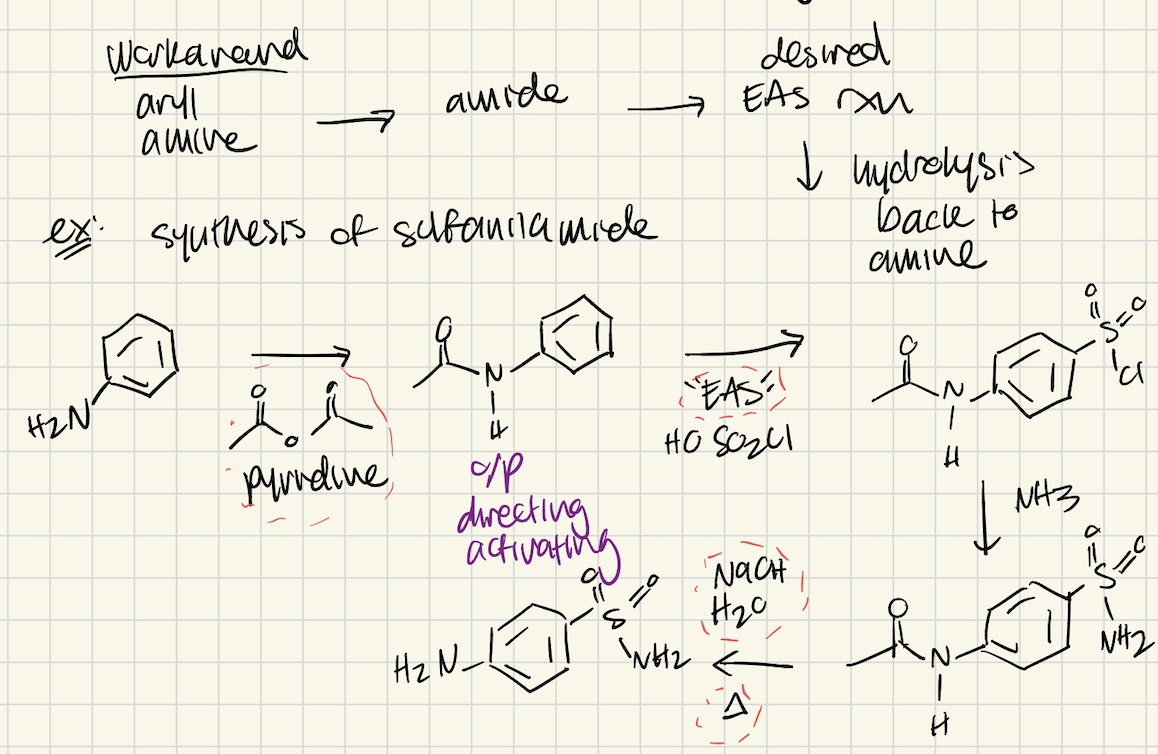 Workaround
aryl
amine
amide
desired
EAS rxn
hydrolysis
back to
amine
ex: synthesis of sulfanilamide
H2N
O
O
O
pyridine
O
N
H
o/p
directing
activating
"EAS"
HO SO2Cl
O
N
H
O
O
S
Cl
NH3
O
N
H
O
O
S
NH2
NaOH
H2O
Δ
H2N
O
O
S
NH2